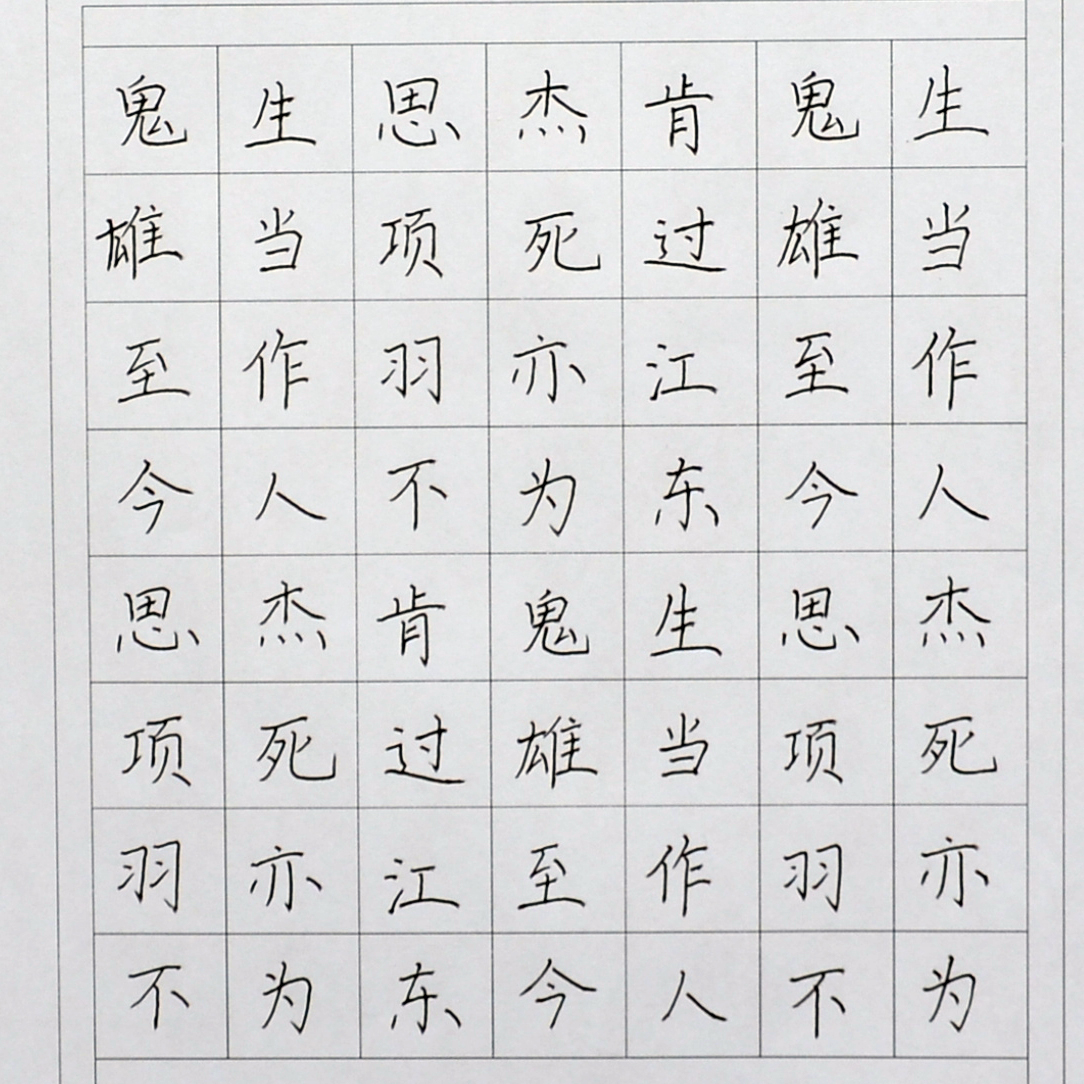 生当作人杰死亦为
鬼雄至今思项羽不
肯过江东生当作人
杰死亦为鬼雄至今
思项羽不肯过江东
生当作人杰死亦为
鬼雄至今思项羽不